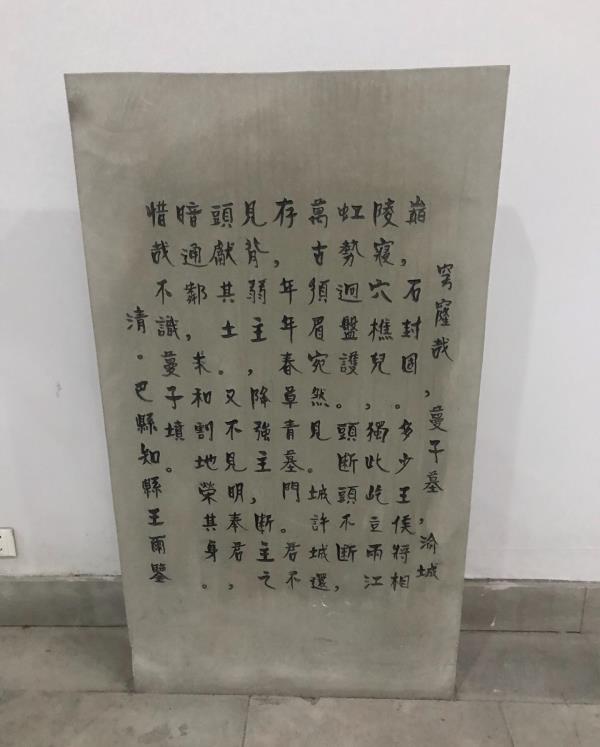 穹窿哉,蔓子墓,渝城
巔,石封固。多少王侯將相
陵寢,穴樵兒,獨此屹立兩江
虹勢迴盤護。頭斷頭不斷,
萬古須眉宛然見。城許城還
存,年年春草青墓門。君不
見背弱主,降強主,斷主之
頭獻其土。又不見明奉君,
暗通鄰,求和割地榮其身。
惜哉不識蔓子墳。
清。巴縣知縣王爾鑒